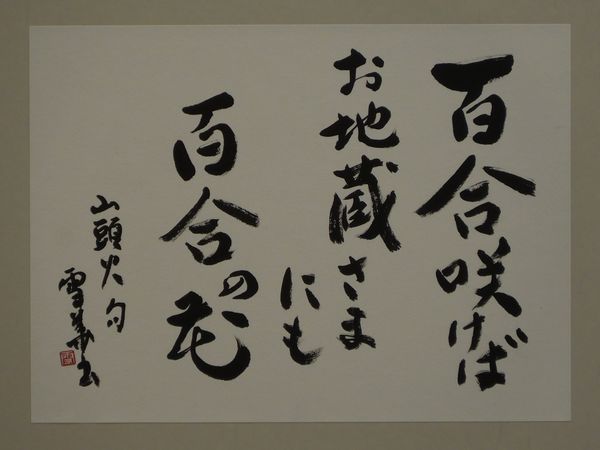 百合咲けば
お地蔵さま
にも
百合の花
山頭火句
雪華書